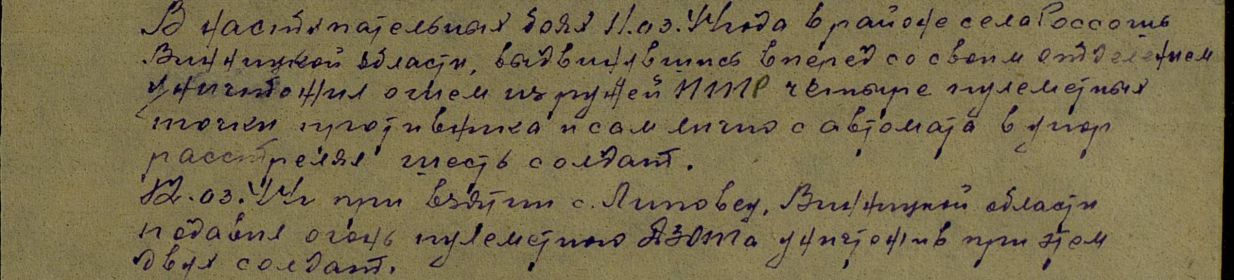 В наступательных боях 11.03.44 года в районе села Россошь
Винницкой области, выдвинувшись вперед со своим отделением
уничтожил огнем из ружей ПТР четыре пулеметных
точки противника и сам лично с автомата в упор
расстрелял шесть солдат.
12.03.44г при взятии с. Липовец, Винницкой области
подавил огонь пулеметного ДЗОТа уничтожив при этом
двух солдат.